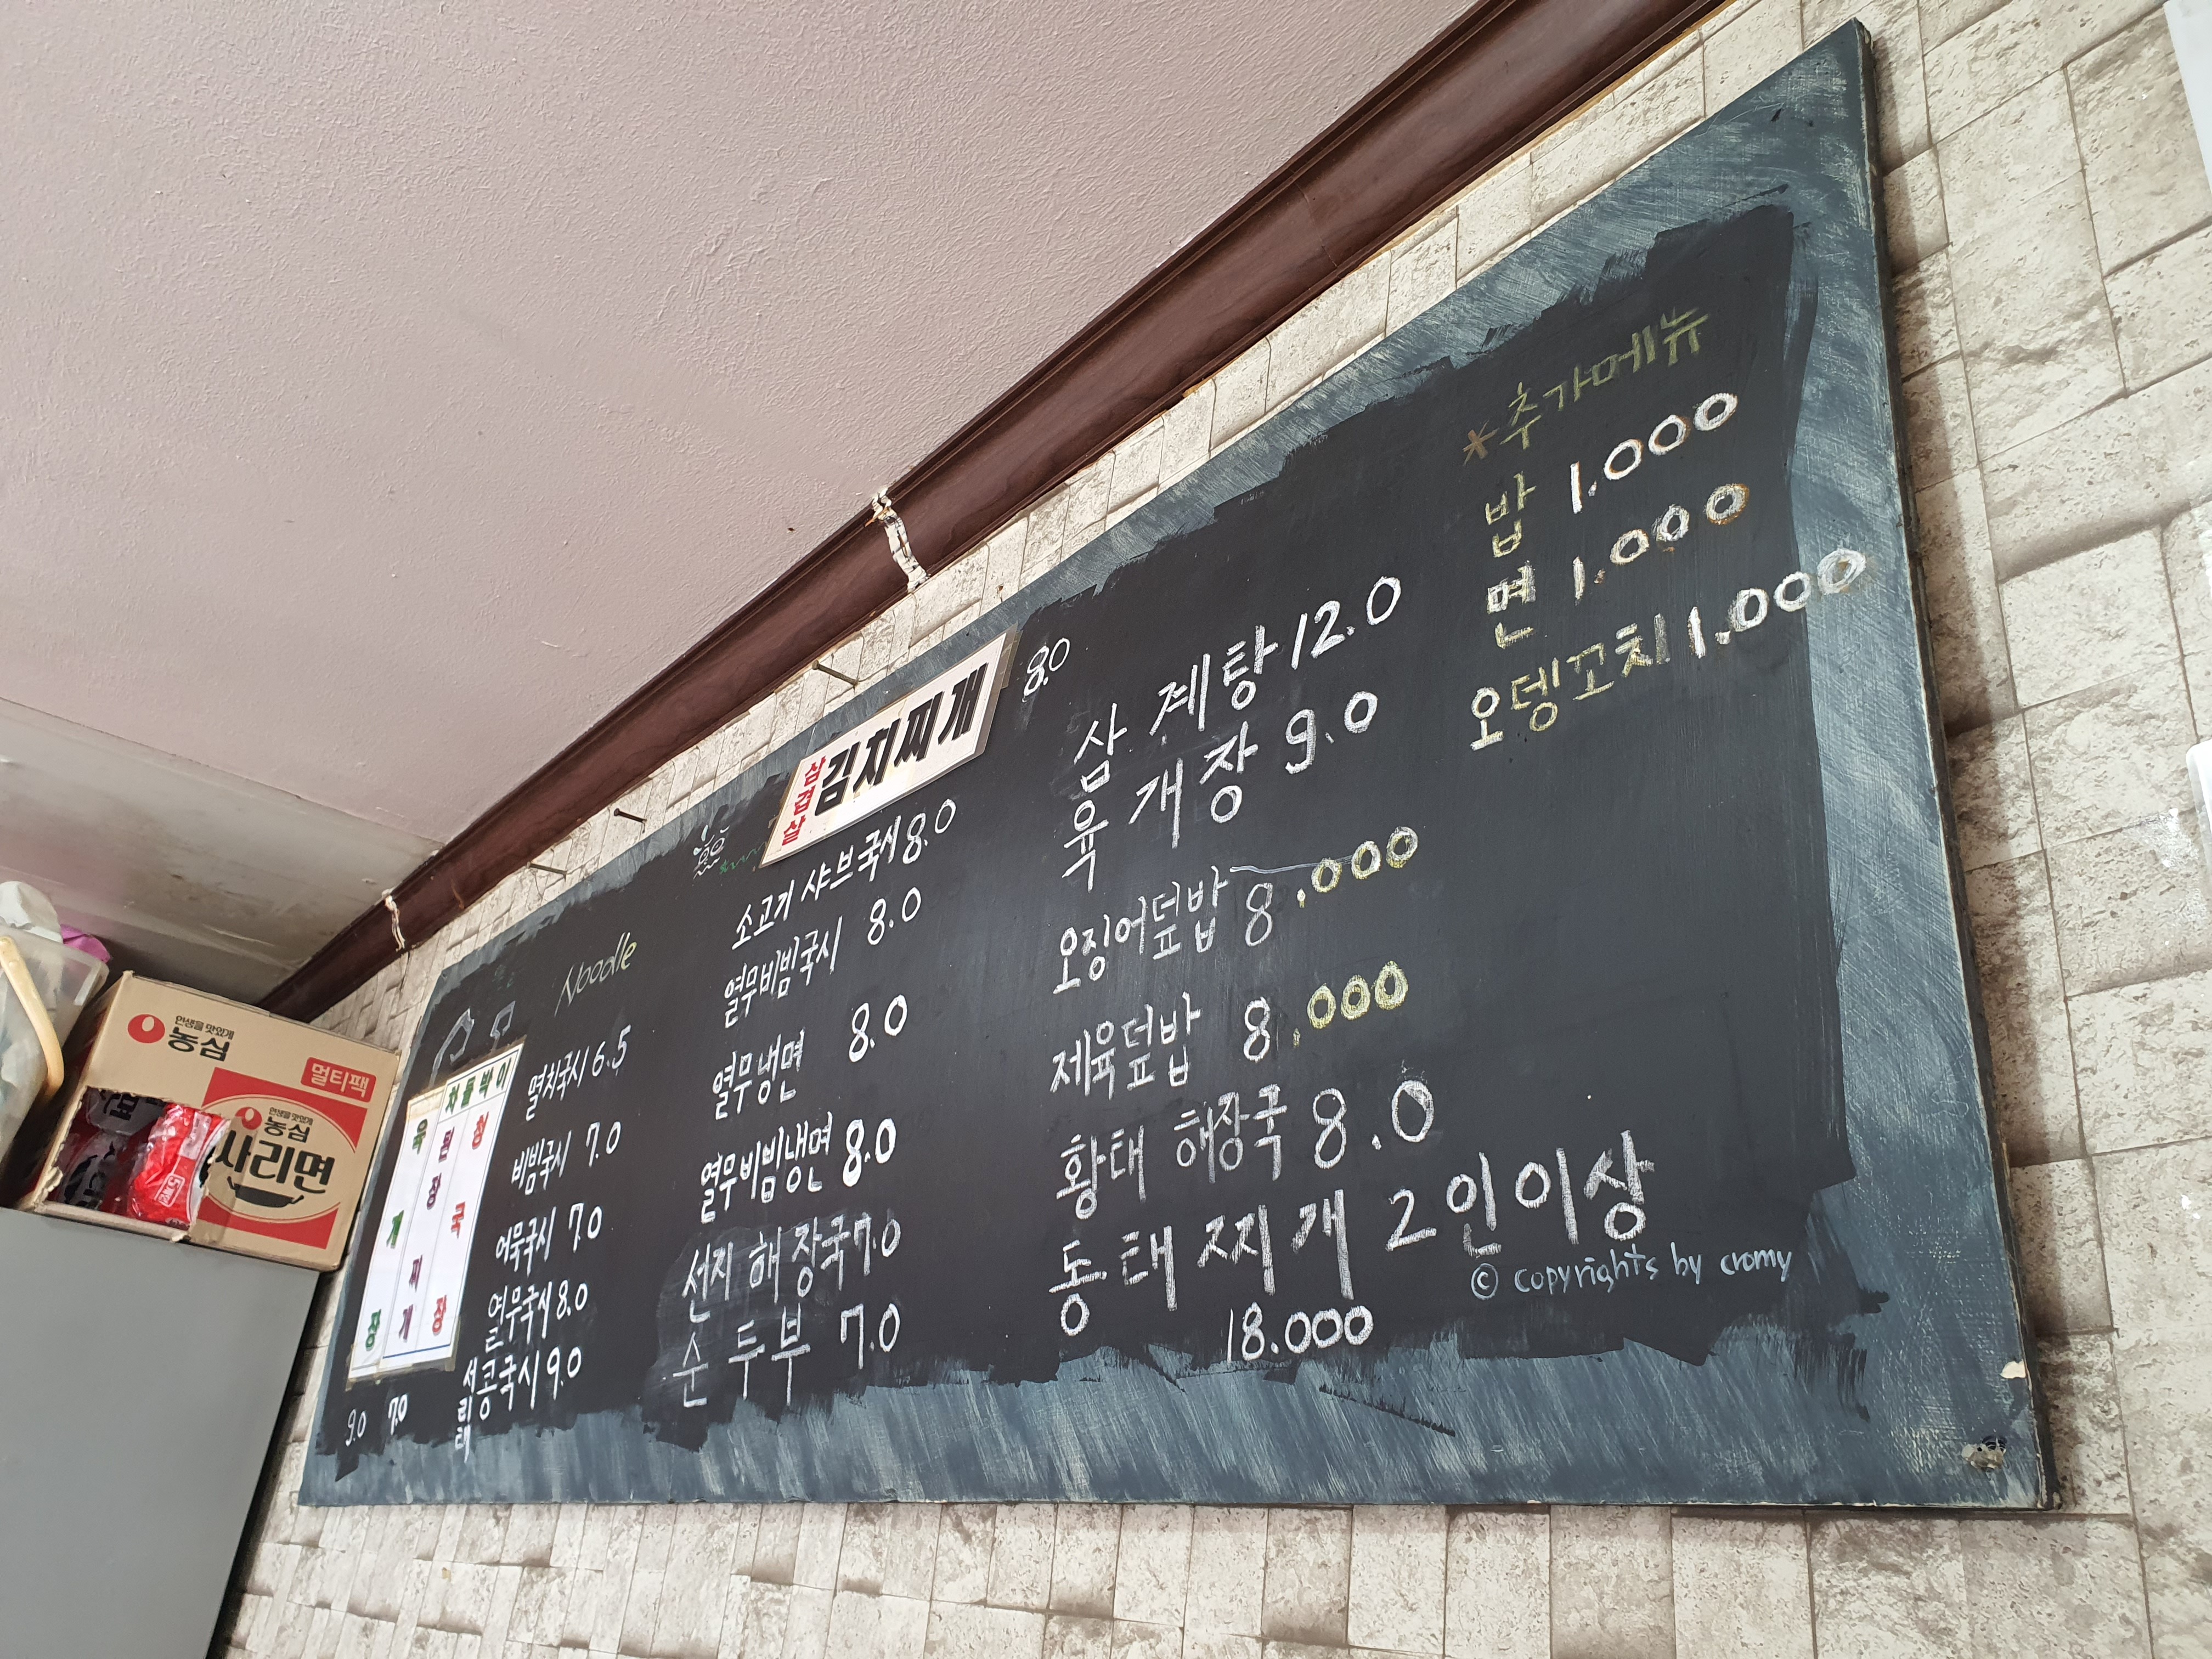 *추가메뉴
밥 1.000
면 1.000
오뎅꼬치 1.000
삼겹살 김치찌개 8.0
삼계탕 12.0
육개장 9.0
오징어덮밥 8.000
제육덮밥 8.000
황태 해장국 8.0
동태찌개 2인이상
18.000
© copyrights by cromy
소고기 샤브국시 8.0
열무비빔국시 8.0
열무냉면 8.0
열무비빔냉면 8.0
선지 해장국 7.0
순두부 7.0
Noodle
멸치국시 6.5
비빔국시 7.0
어묵국시 7.0
열무국시 8.0
서리태 콩국시 9.0
차돌박이
된장찌개
7.0
9.0
인생을 맛있게
농심
멀티팩
인생을 맛있게
농심
사리면